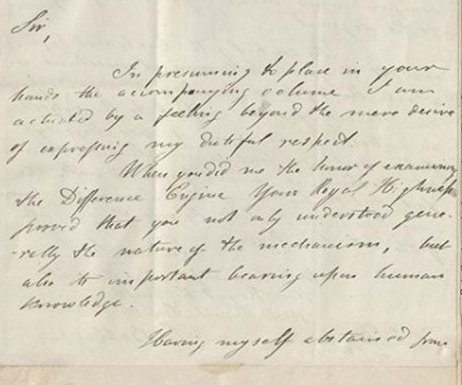 Sir,
In presuming to place in your
hands the accompanying volume I am
actuated by a feeling beyond the mere desire
of expressing my dutiful respect.
When you did me the honor of examining
the Difference Engine Your Royal Highness
proved that you not only understood gene-
rally the nature of the mechanism, but
also its important bearing upon human
knowledge.
Having myself abstained from